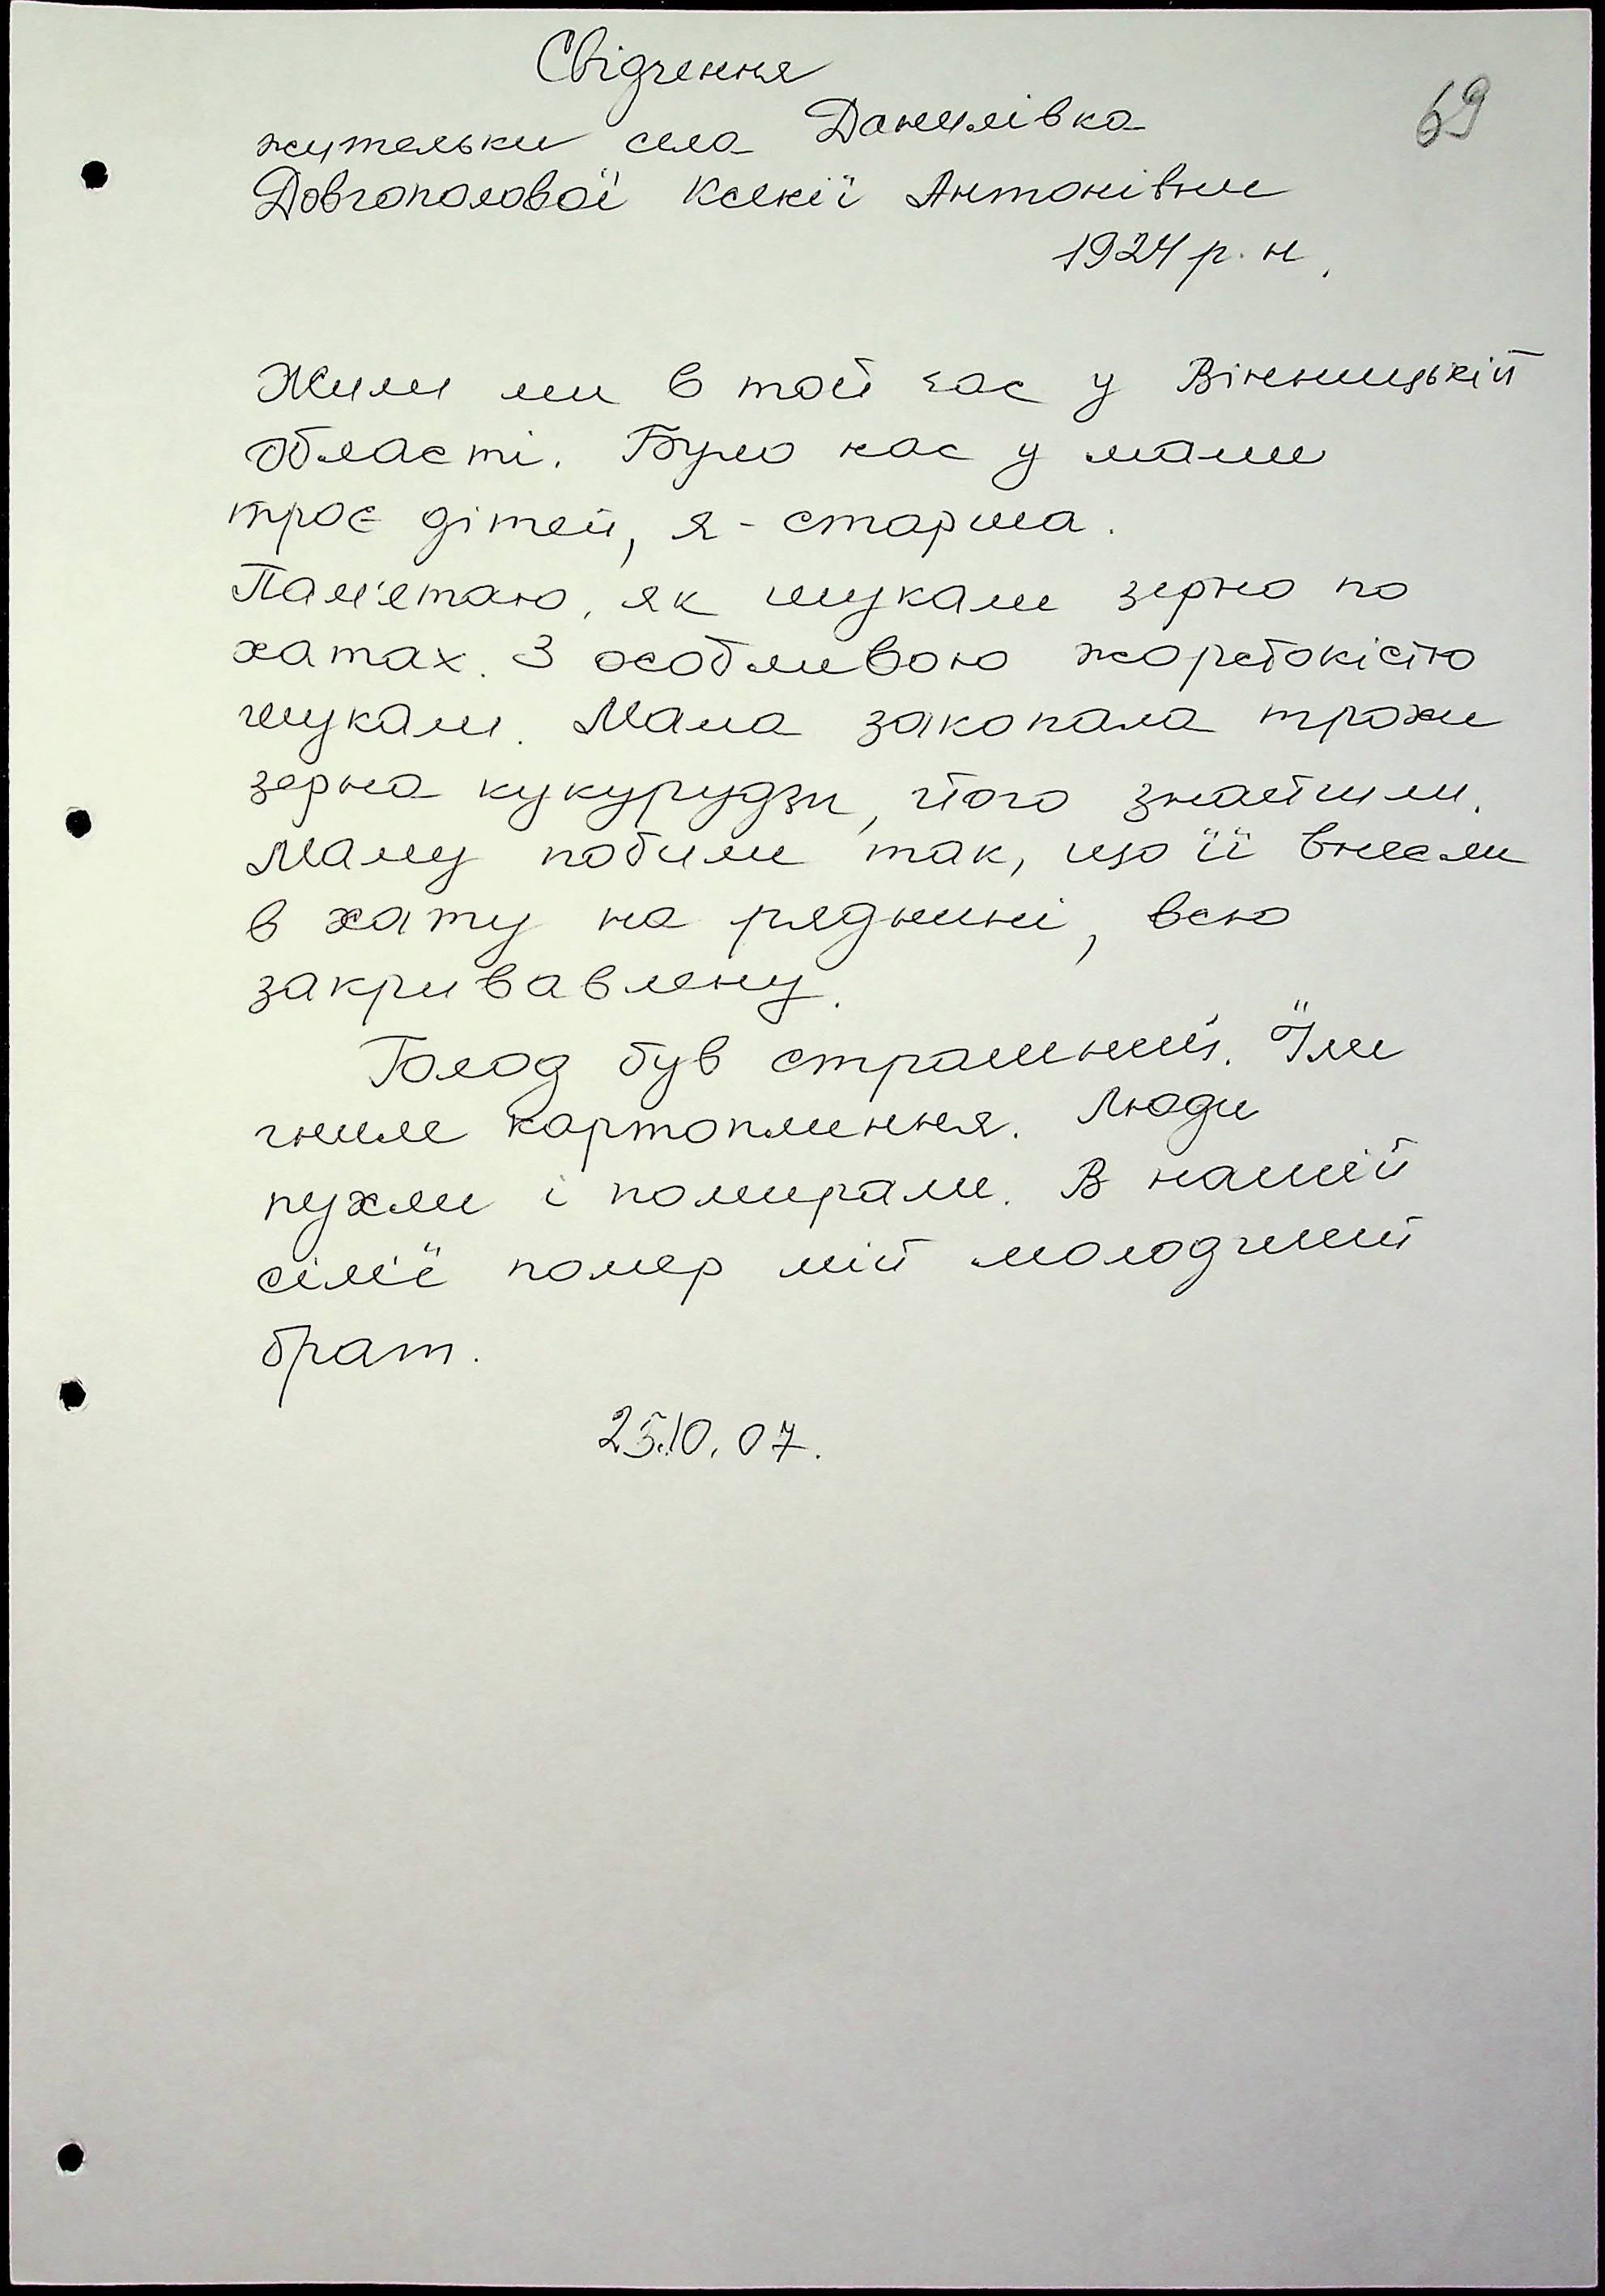 Свідчення
69
жительки села Данилівка
Довгополової Ксенії Антонівни
1924 р. н.
Жили ми в той час у Вінницькій
області. Було нас у мами
троє дітей, я - старша.
Пам'ятаю, як шукали зерно по
хатах. З особливою жорстокістю
шукали. Мама закопала трохи
зерна кукурудзи, його знайшли.
Маму побили так, що її внесли
в хату на рядnині, всю
закривавлену.
Голод був страшний. Їли
гниле картоплиння. Люди
пухли і помирали. В нашій
сім'ї помер мій молодший
брат.
25.10.07.